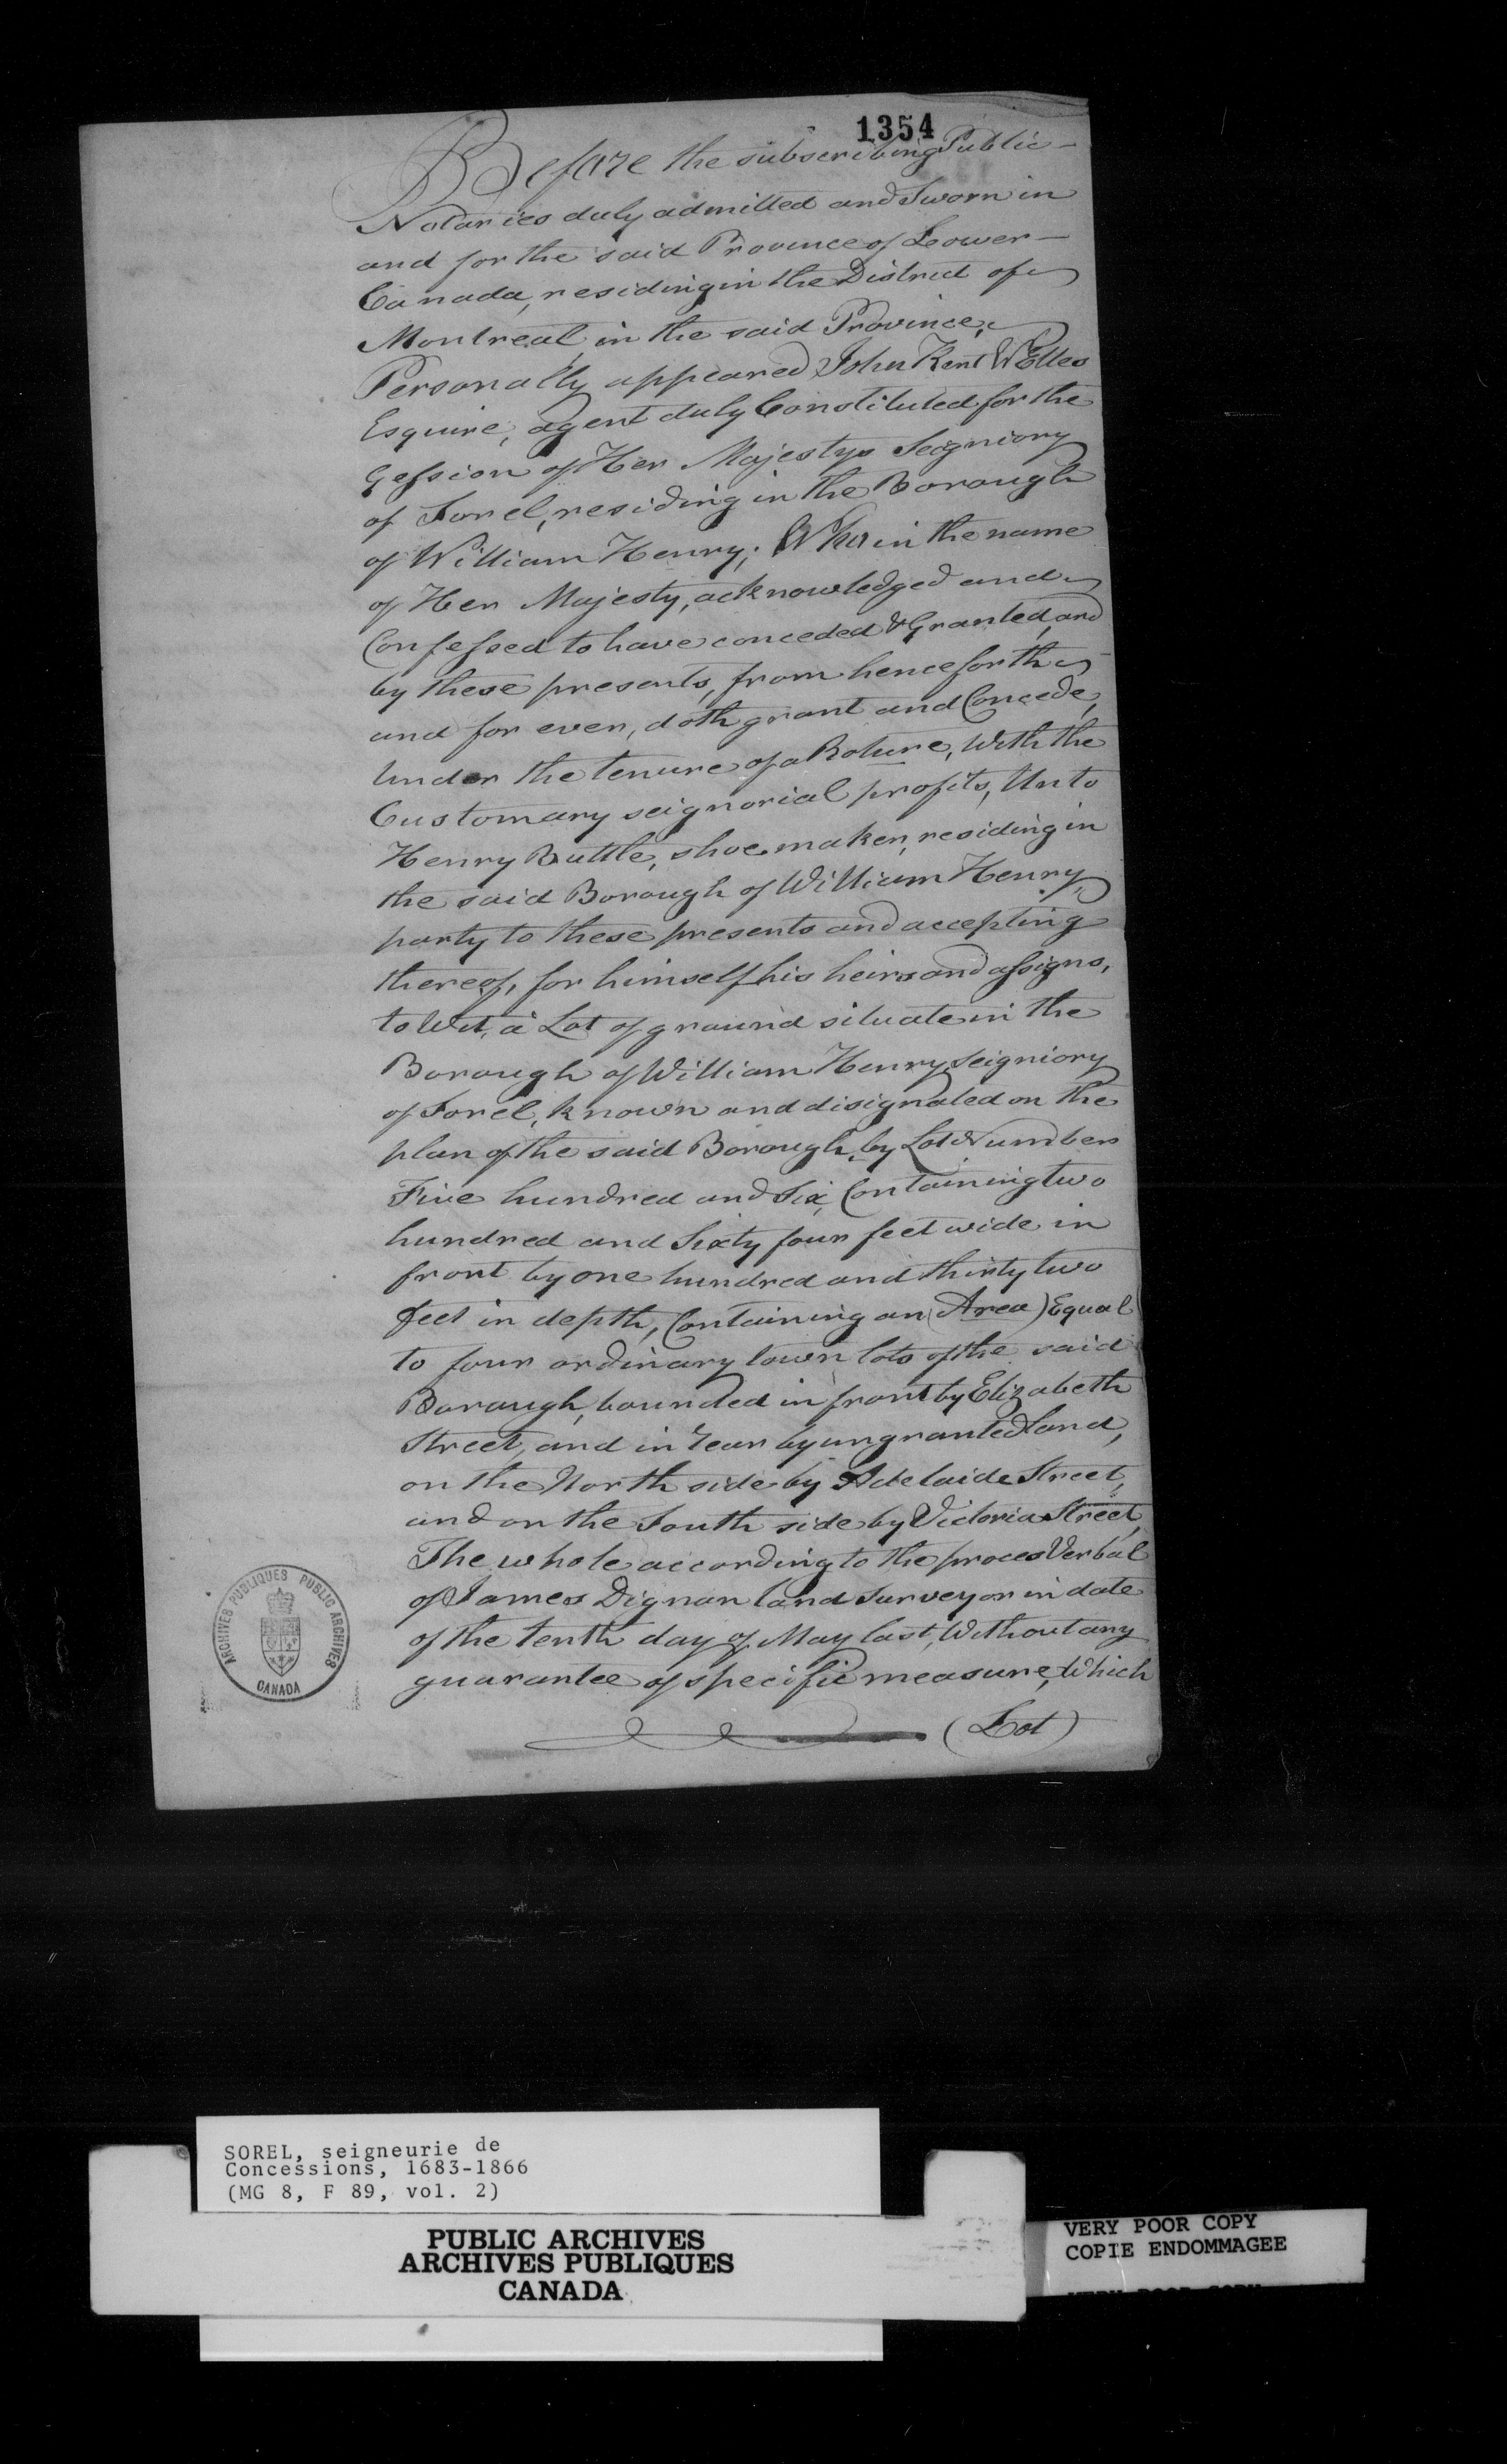 1354
Before the subscribing Public
Notaries duly admitted and Sworn in
and for the said Province of Lower
Canada, residing in the District of
Montreal, in the said Province,
Personally appeared John Kent Welles
Esquire, agent duly Constituted for the
Gession of Her Majestys Seigniory
of Sorel, residing in the Borough
of William Henry; Who in the name
of Her Majesty, acknowledged and
Confessed to have conceded & Granted, and
by these presents, from henceforth
and for ever, doth grant and Concede,
Under the tenure of a Roture, With the
Customary seignorial profits, Unto
Henry Buttle, shoe maker, residing in
the said Borough of William Henry,
party to these presents and accepting
thereof, for himself his heirs and assigns,
to Wit, a Lot of ground situate in the
Borough of William Henry, Seigniory
of Sorel, known and disignated on the
plan of the said Borough, by Lot Number
Five hundred and Six, Containing two
hundred and Sixty four feet wide in
front by one hundred and thirty two
feet in depth, Containing an (Area) Equal
to four ordinary town lots of the said
Borough, bounded in front by Elizabeth
Street, and in rear by ungranted Land,
on the North side by Adelaide Street,
and on the South side by Victoria Street,
The whole according to the proces Verbal
of James Dignan land Surveyor in date
of the tenth day of May last, Without any
guarantee of specific measure, Which
(Lot)
ARCHIVES PUBLIQUES PUBLIC ARCHIVES
CANADA
SOREL, seigneurie de
Concessions, 1683-1866
(MG 8, F 89, vol. 2)
PUBLIC ARCHIVES
ARCHIVES PUBLIQUES
CANADA
VERY POOR COPY
COPIE ENDOMMAGEE
VERY POOR COPY